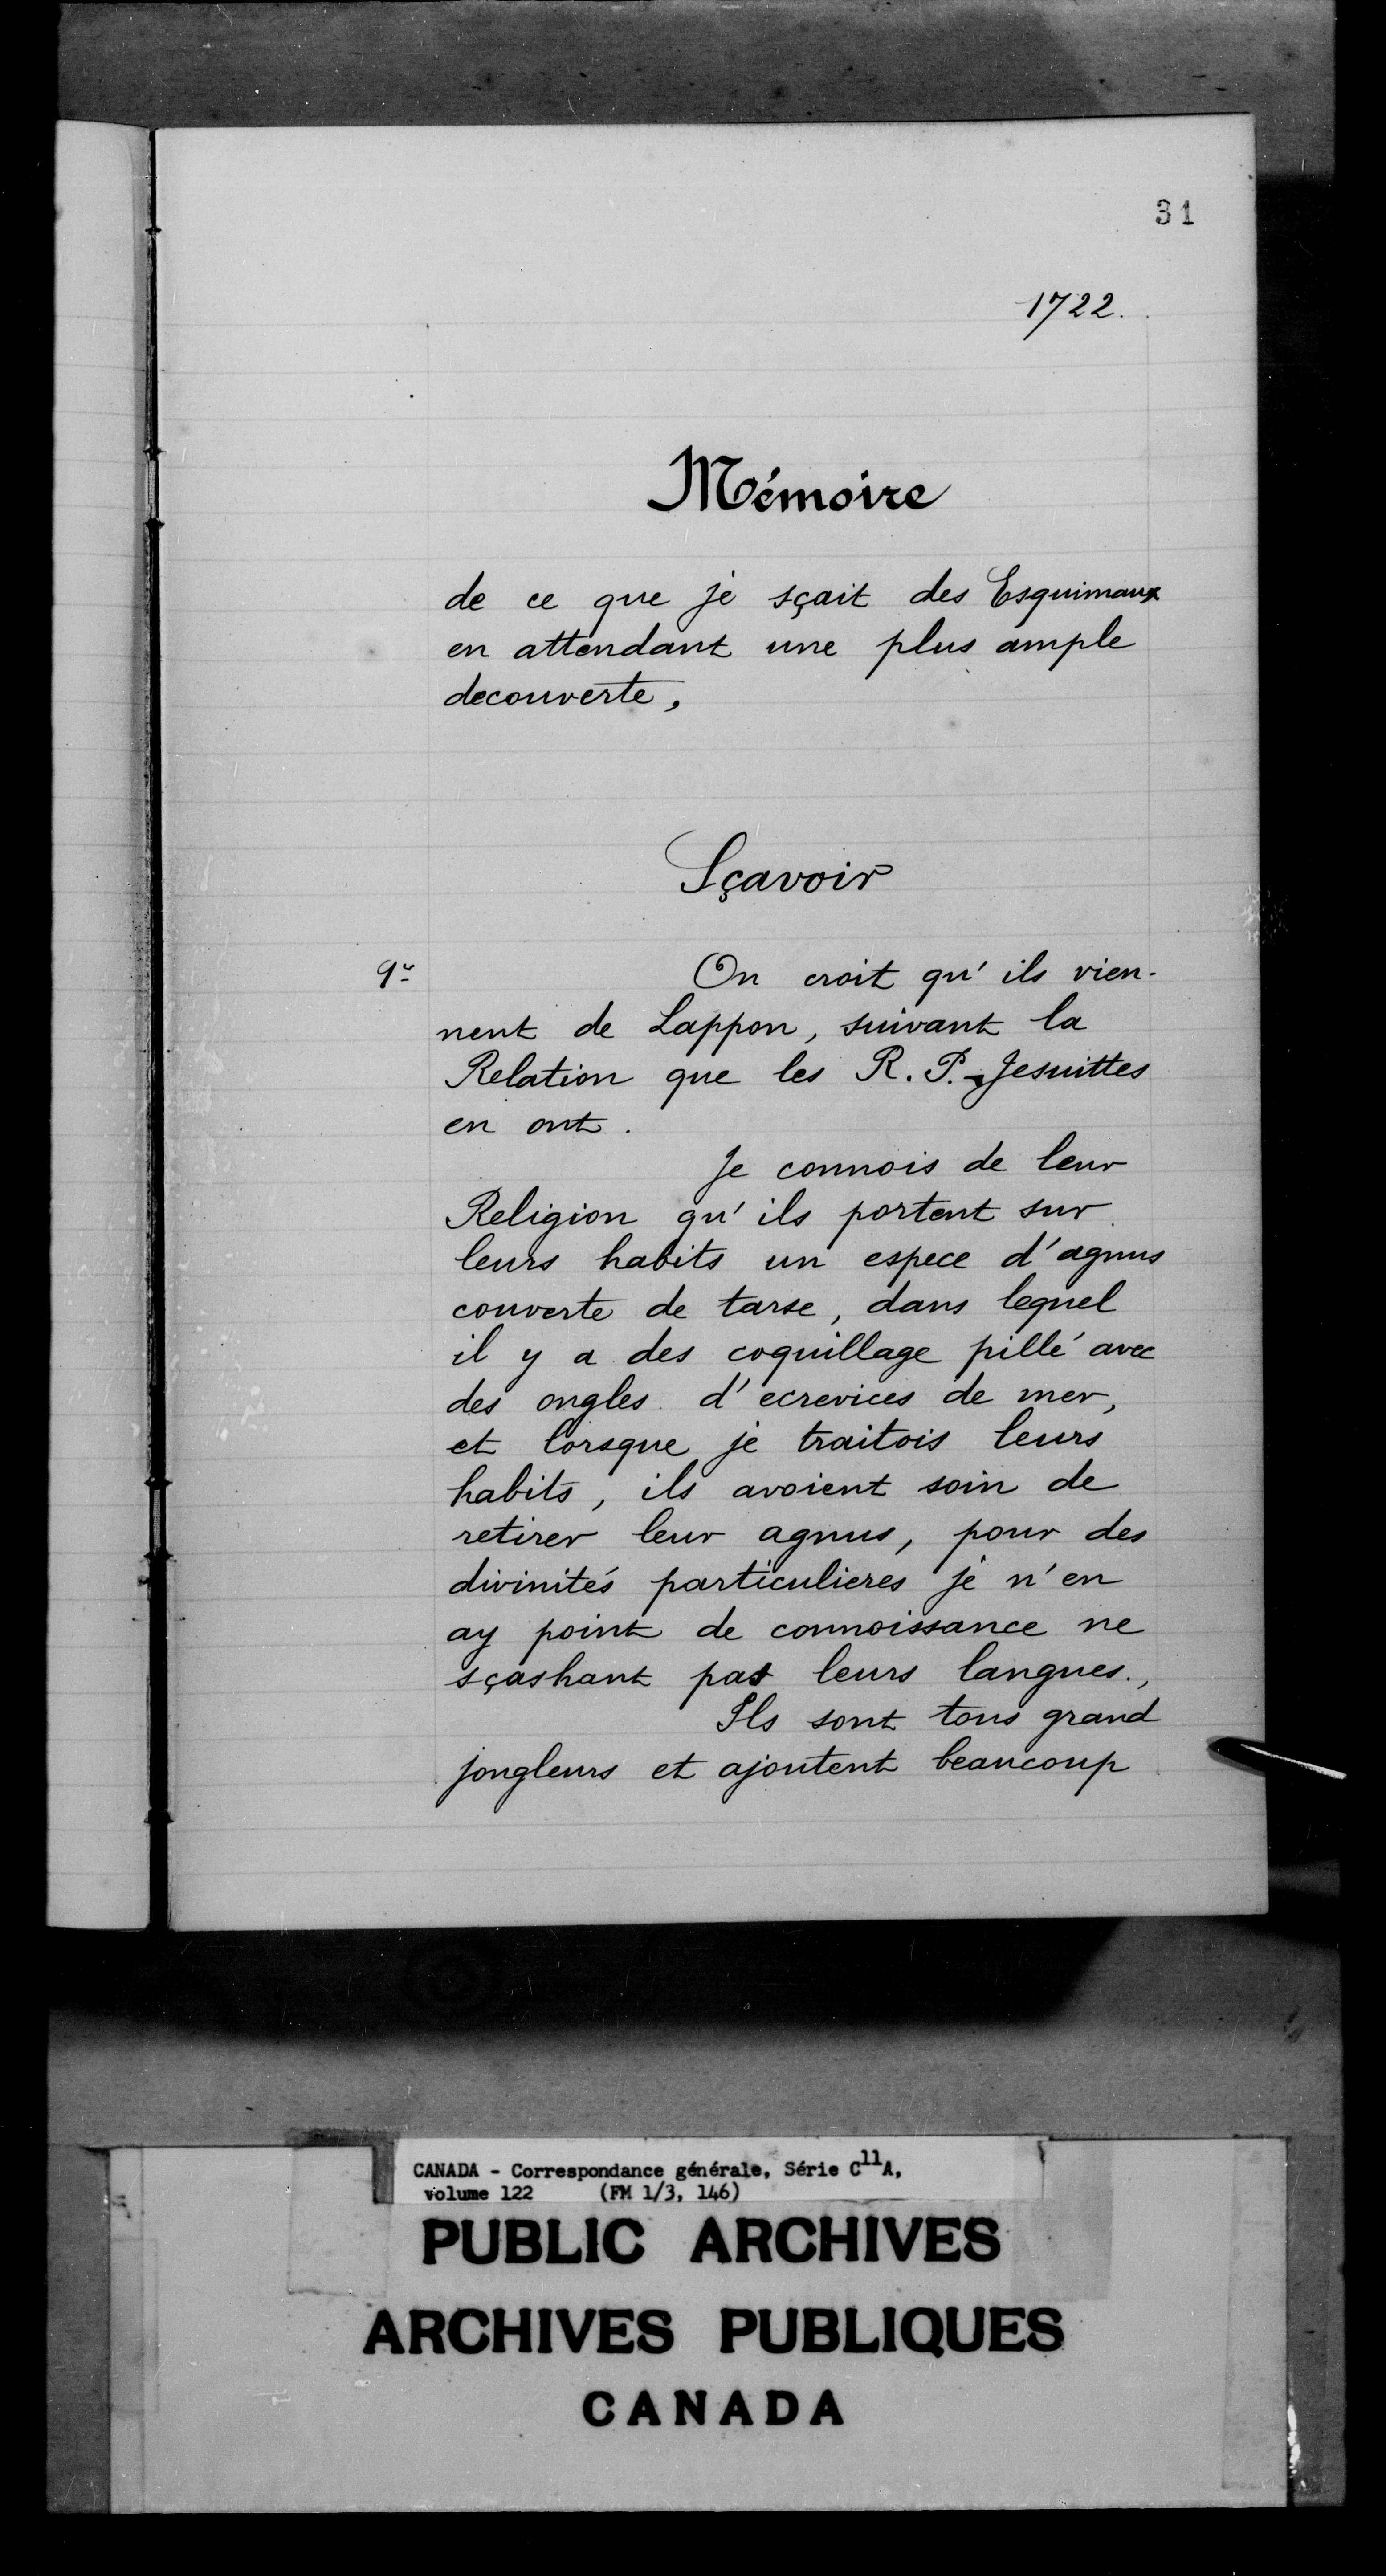 31
1722.
Mémoire
de ce que je sçait des Esquimaux
en attendant une plus ample
decouverte,
Sçavoir
On croit qu'ils vien-
nent de Lappon, suivant la
Relation que les R. P. Jesuittes
en ont.
Je connois de leur
Religion qu'ils portent sur
leurs habits un espece d'agnus
couverte de tarse, dans lequel
il y a des coquillage pillé avec
des ongles d'ecrevices de mer,
et lorsque je traitois leurs
habits, ils avoient soin de
retirer leur agnus, pour des
divinités particulieres je n'en
ay point de connoissance ne
sçashant pas leurs langues.,
Ils sont tous grand
jongleurs et ajoutent beaucoup
CANADA - Correspondance générale, Série C11A,
volume 122 (FM 1/3, 146)
PUBLIC ARCHIVES
ARCHIVES PUBLIQUES
CANADA